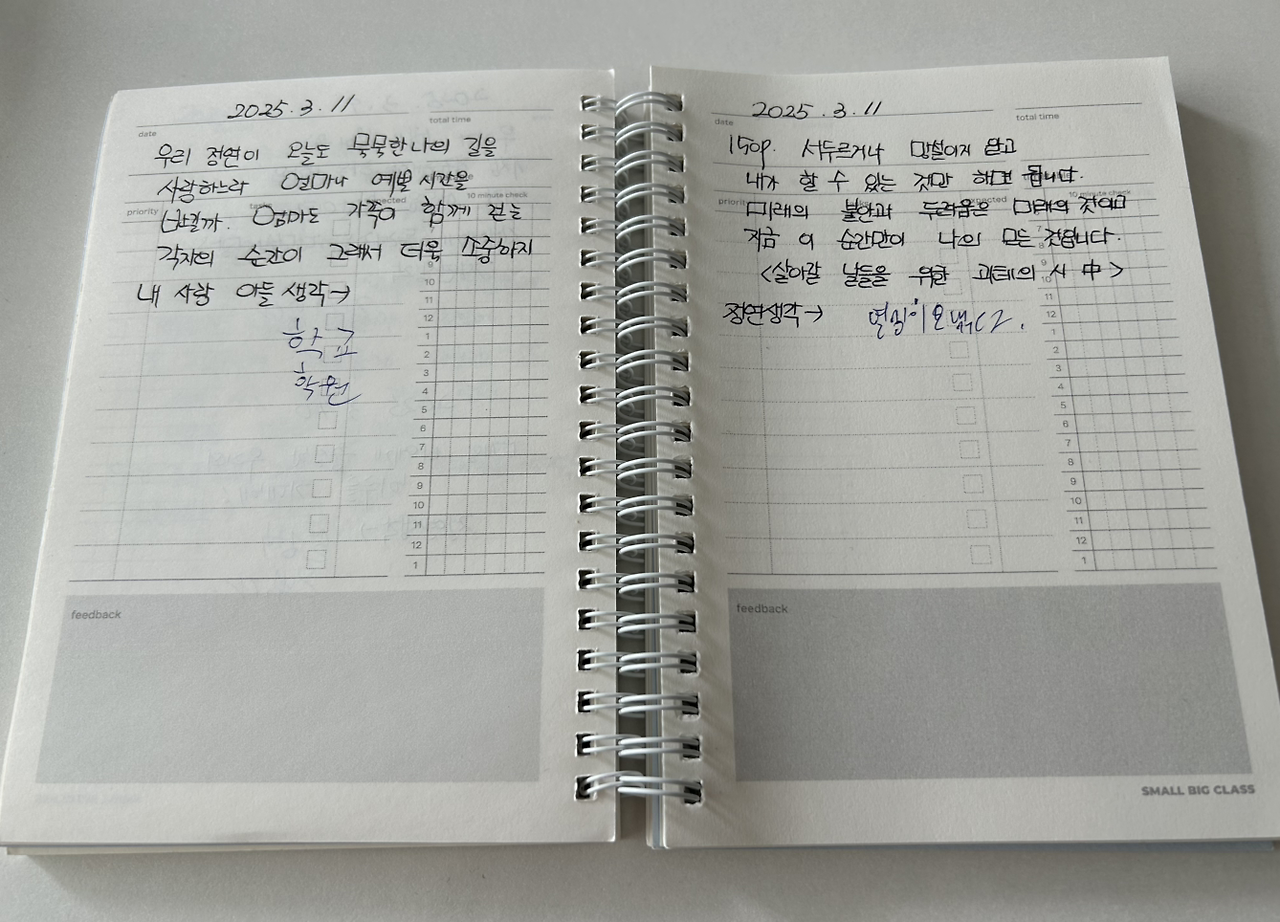 2025. 3. 11
date
total time
우리 정연이 오늘도 묵묵한 나의 길을
사랑하느라 얼마나 예쁠 시간을
10 minute check
priority
보낼까. 엄마도 가족이 함께 걷는
각자의 순간이 그래서 더욱 소중하지
내 사랑 아들 생각→
학교
학원
9
10
11
12
1
2
3
4
5
6
7
8
9
10
11
12
1
feedback
2025. 3. 11
date
total time
150p. 서두르거나 망설이지 않고
내가 할 수 있는 것만 하면 됩니다.
10 minute check
priority
미래의 불안과 두려움은 미래의 것이며
지금 이 순간만이 나의 모든 것입니다.
<살아갈 날들을 위한 괴테의 시 中>
정연생각→
7
8
9
10
11
12
1
2
3
4
5
6
7
8
9
10
11
12
1
feedback
SMALL BIG CLASS